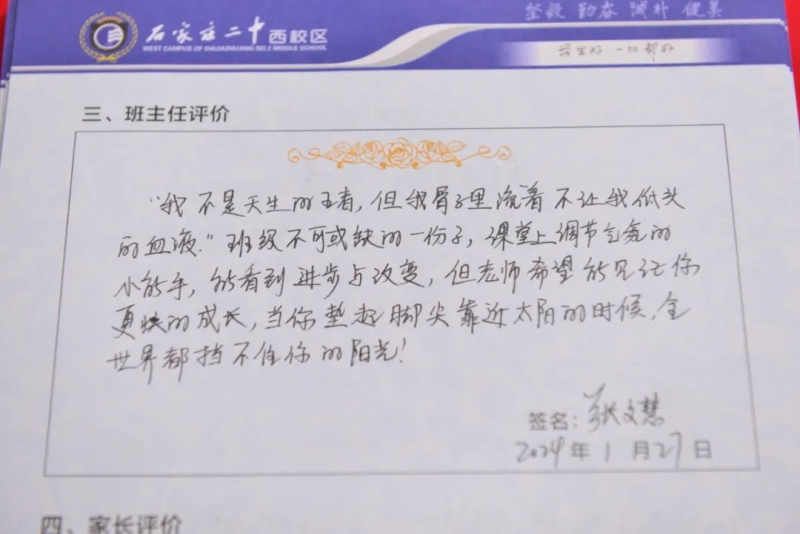 坚毅 勤奋 诚朴 健美
石家庄二中西校区
WEST CAMPUS OF SHIJIAZHUANG NO.2 MIDDLE SCHOOL
学生好 一切都好
三、班主任评价
“我不是天生的王者，但我骨子里流着不让我低头
的血液。”班级不可或缺的一份子，课堂上调节气氛的
小能手，能看到进步与改变，但老师希望能见证你
更快的成长，当你垫起脚尖靠近太阳的时候，全
世界都挡不住你的阳光！
签名：张文慧
2024年1月27日
四、家长评价